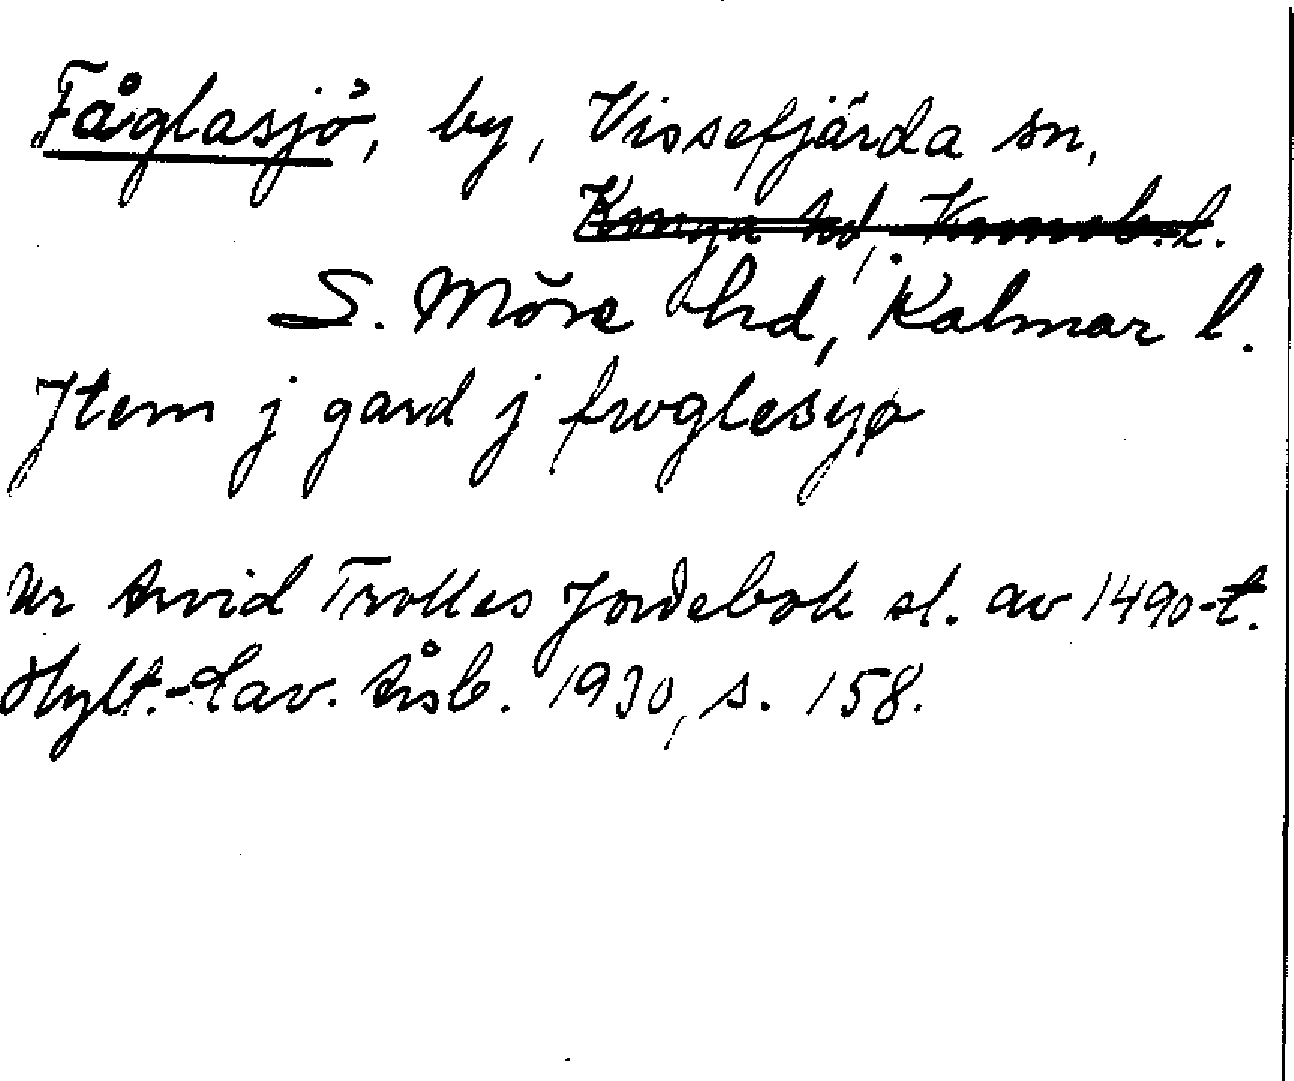 Fåglasjö, by, Vissefjärda sn,
Konga hd, Kronob. l.
S. Möre hd, Kalmar l.
Jtem j gard j fwglesyø
Ur Arvid Trolles Jordebok sl. av 1490-t.
Hylt.-Cav. Årsb. 1930, s. 158.